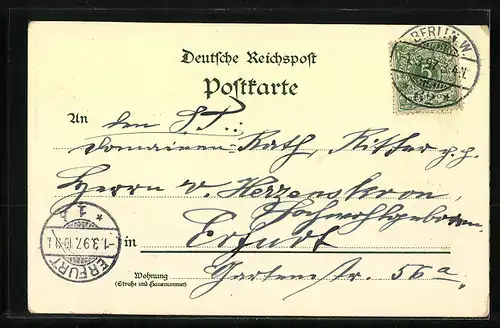 Deutsche Reichspost
Postkarte
BERLIN.W.
5
An den
Domainen-Rath, Ritter p.p.
Herrn v. Herzenskron,
Hochwohlgeboren
in Erfurt
Wohnung
(Straße und Hausnummer)
Gartenstr. 56a.
ERFURT
1.3.97.
* 1 *